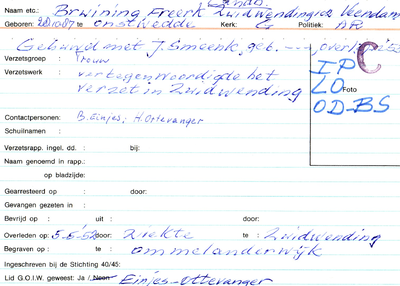 Naam etc.: Bruining Freerk Zuidwending 102 Veendam
Geboren: 28 10 87 te Onstwedde Kerk: G Politiek: AR
Gehuwd met J. Smeenk, geb. --- overl.
Verzetsgroep : Trouw
Verzetswerk : vertegenwoordigde het
verzet in Zuidwending
I P C
L O Foto
O D - B S
Contactpersonen: B. Einjes; H. Ottevanger
Schuilnaam :
Verzetsrapp. ingel. dd. : bij:
Naam genoemd in rapp.:
op bladzijde:
Gearresteerd op : door:
Gevangen gezeten in :
Bevrijd op : uit : door:
Overleden op : 5-6-'52 door: Ziekte te : Zuidwending
Begraven op : te : Ommelanderwijk
Ingeschreven bij de Stichting 40/45:
Lid G.O.I.W. geweest: Ja / Neen Einjes-Ottevanger